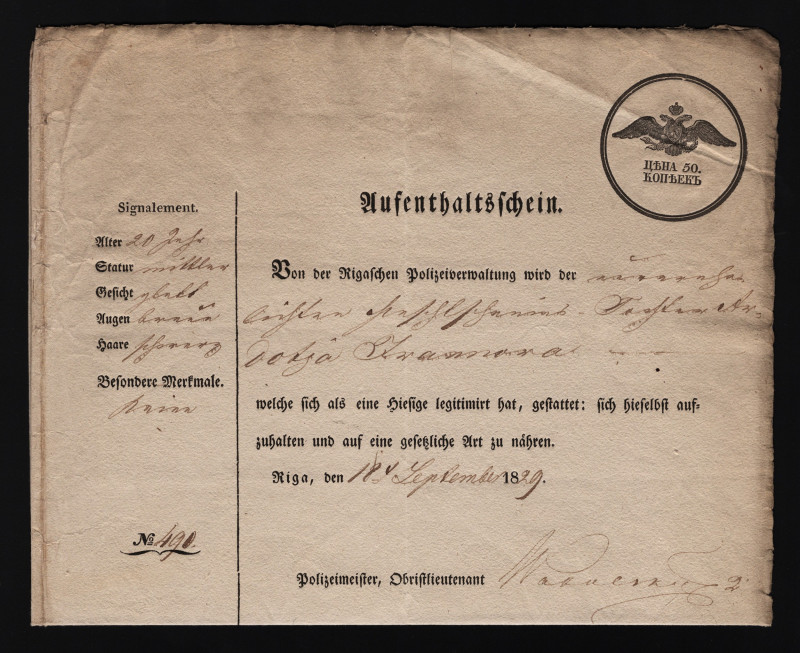 ЦѢНА 50.
КОПѢЕКЪ
Aufenthaltsschein.
Signalement.
Alter 20 Jahr
Statur mittler
Gesicht glatt
Augen braun
Haare schwarz
Besondere Merkmale.
Keine
№ 490.
Von der Rigaschen Polizeiverwaltung wird der
Tochter
welche sich als eine Hiesige legitimirt hat, gestattet: sich hieselbst auf=
zuhalten und auf eine gesetzliche Art zu nähren.
Riga, den September 1829.
Polizeimeister, Obristlieutenant